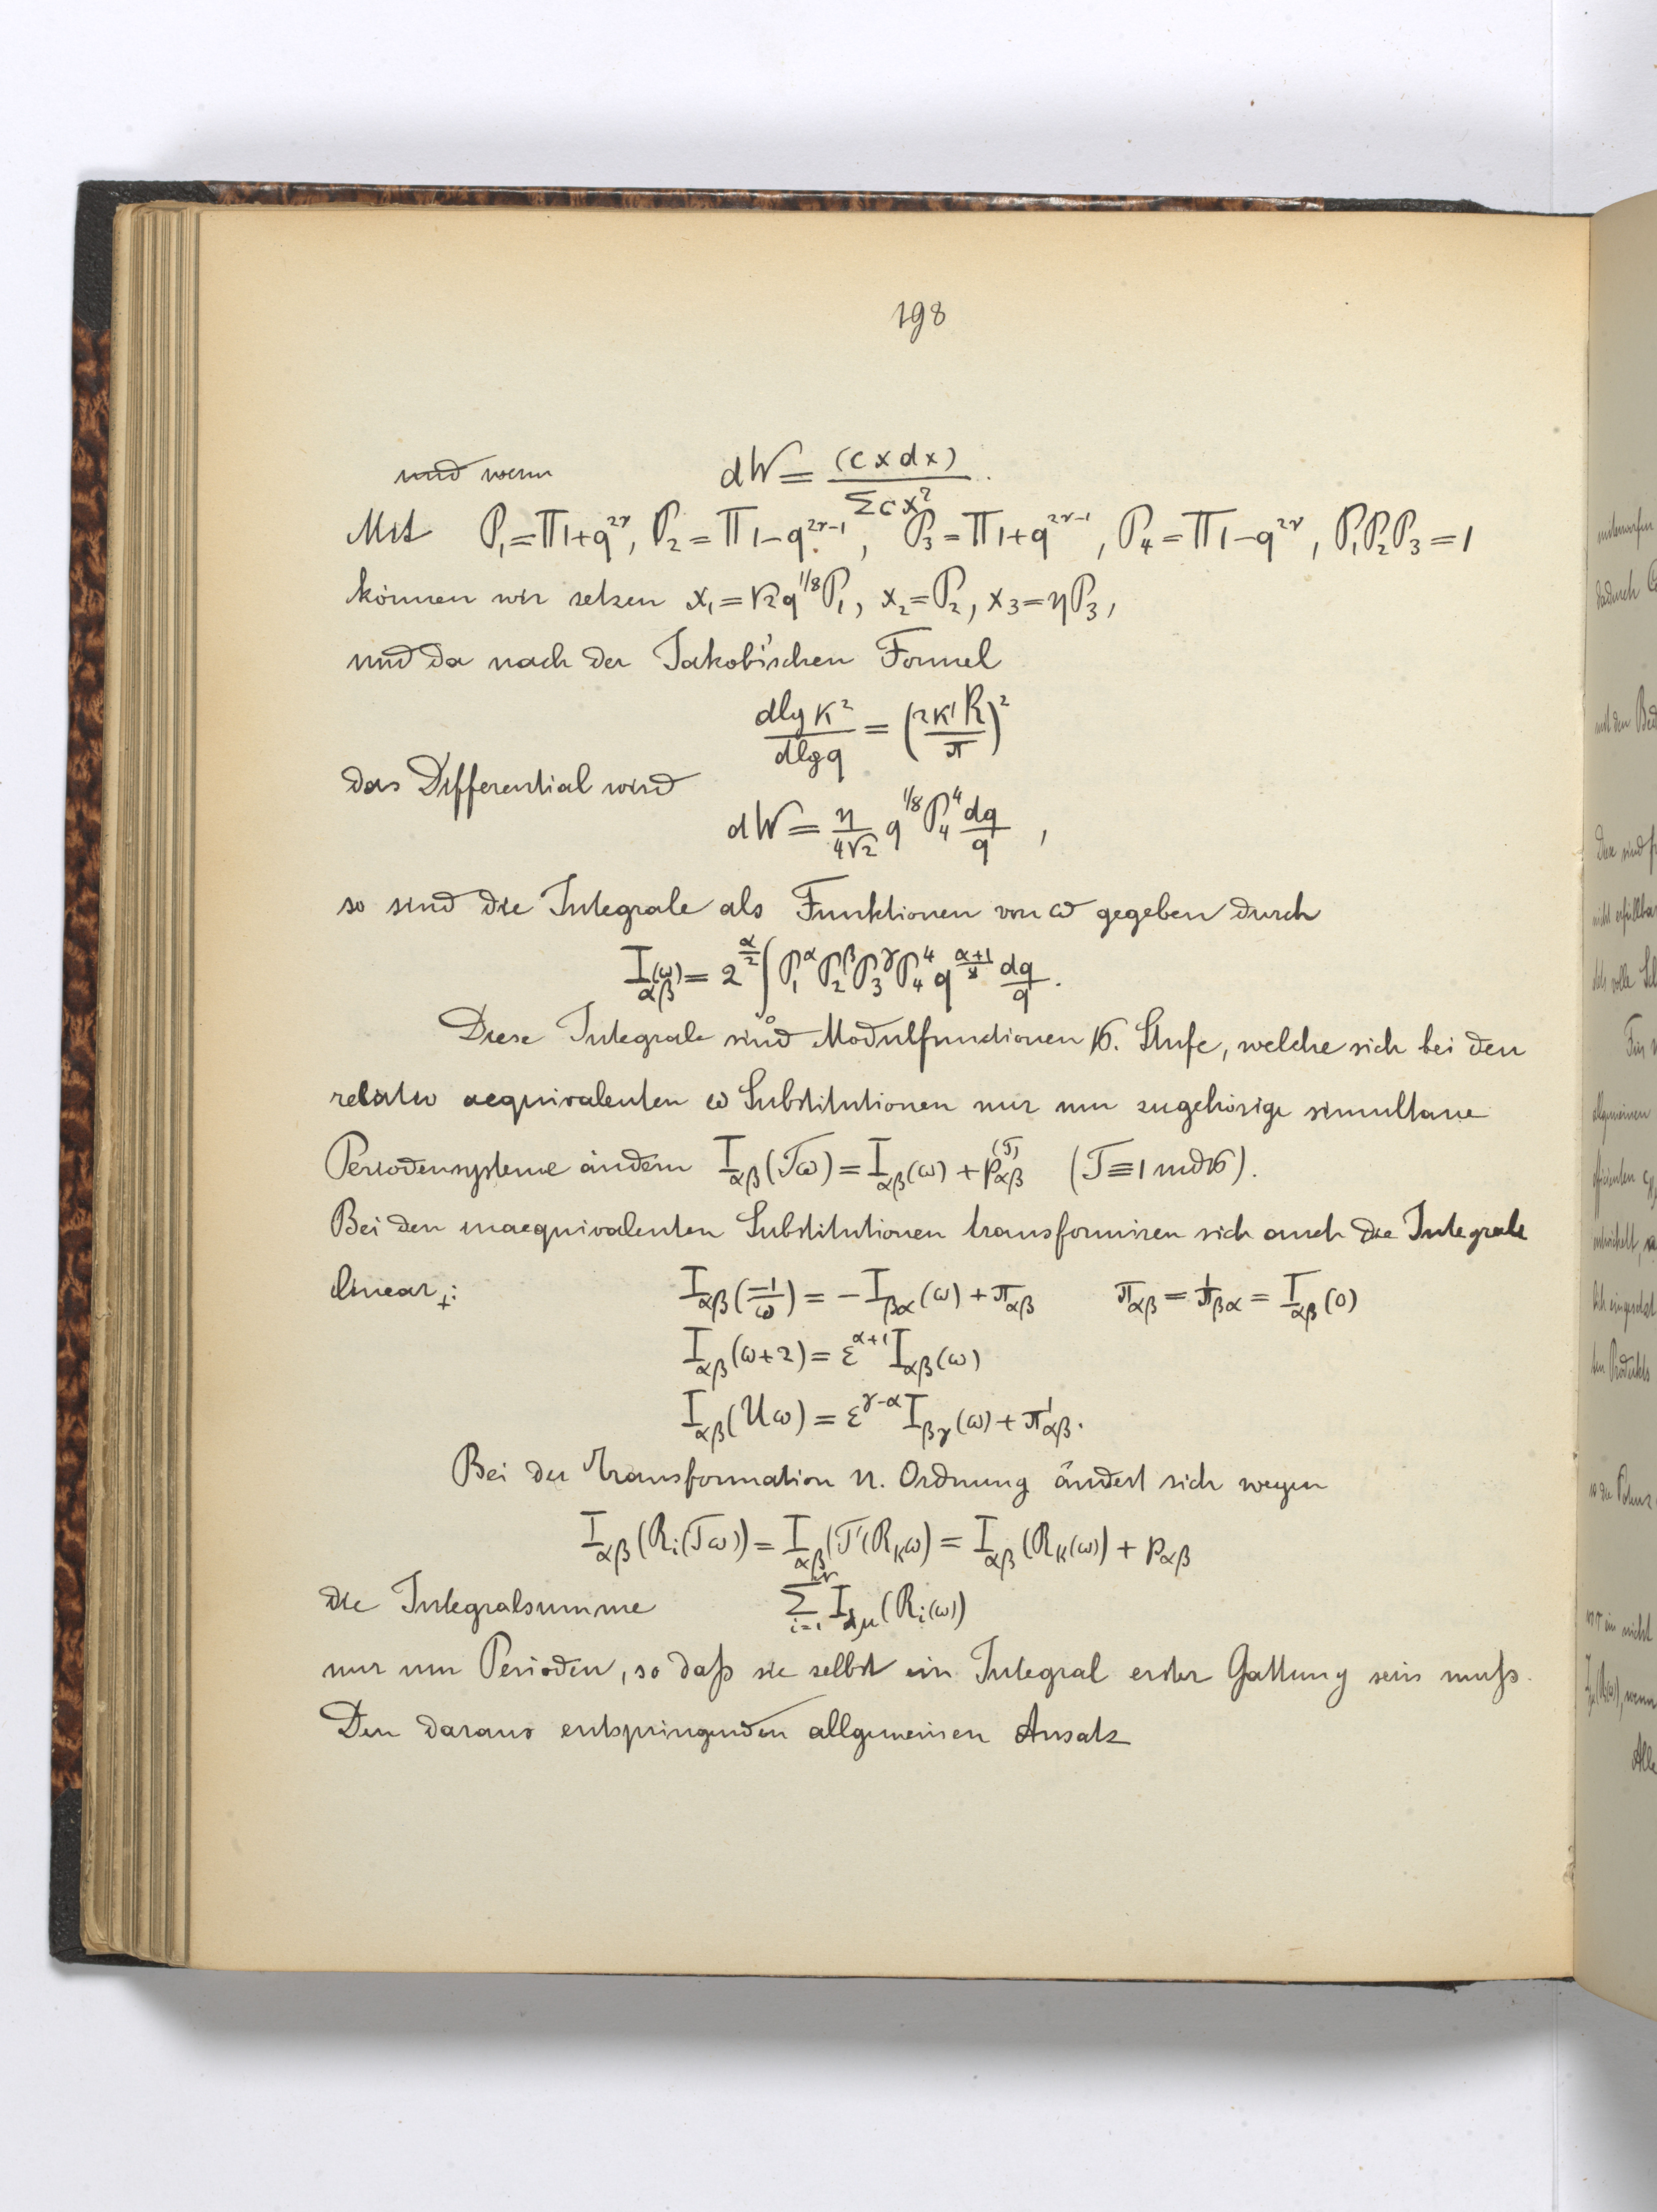 198
und wenn dW = (c x dx) / Σcx²
Mit P₁=Π1+q^{2ν}, P₂=Π1−q^{2ν−1}, P₃=Π1+q^{2ν−1}, P₄=Π1−q^{2ν}, P₁P₂P₃=1
können wir setzen x₁=√2q^{1/8}P₁, x₂=P₂, x₃=ηP₃,
und da nach der Jakobi'schen Formel
dlg κ² / dlg q = (2κ'K / π)²
das Differential wird
dW = η/(4√2) q^{1/8} P₄⁴ dq/q ,
so sind die Integrale als Funktionen von ω gegeben durch
I_{αβ}(ω) = 2^{α/2} ∫₀ P₁^α P₂^β P₃^γ P₄⁴ q^{(α+1)/8} dq/q .
Diese Integrale sind Modulfunctionen 16. Stufe, welche sich bei den
relativ aequivalenten ω Substitutionen nur um zugehörige simultane
Periodensysteme ändern I_{αβ}(Tω) = I_{αβ}(ω) + p_{αβ}^{(T)} (T≡1 mod 16).
Bei den inaequivalenten Substitutionen transformiren sich auch die Integrale
linear: I_{αβ}(−1/ω) = −I_{βα}(ω) + π_{αβ} π_{αβ} = π_{βα} = I_{αβ}(0)
I_{αβ}(ω+2) = ε^{α+1} I_{αβ}(ω)
I_{αβ}(Uω) = ε^{γ−α} I_{βγ}(ω) + π'_{αβ}.
Bei der Transformation n. Ordnung ändert sich wegen
I_{αβ}(R_i(Tω)) = I_{αβ}(T'(R_kω) = I_{αβ}(R_k(ω)) + p_{αβ}
die Integralsumme Σ_{i=1} I_{λμ}(R_i(ω))
nur um Perioden, so daß sie selbst ein Integral erster Gattung sein muß.
Den daraus entspringenden allgemeinen Ansatz